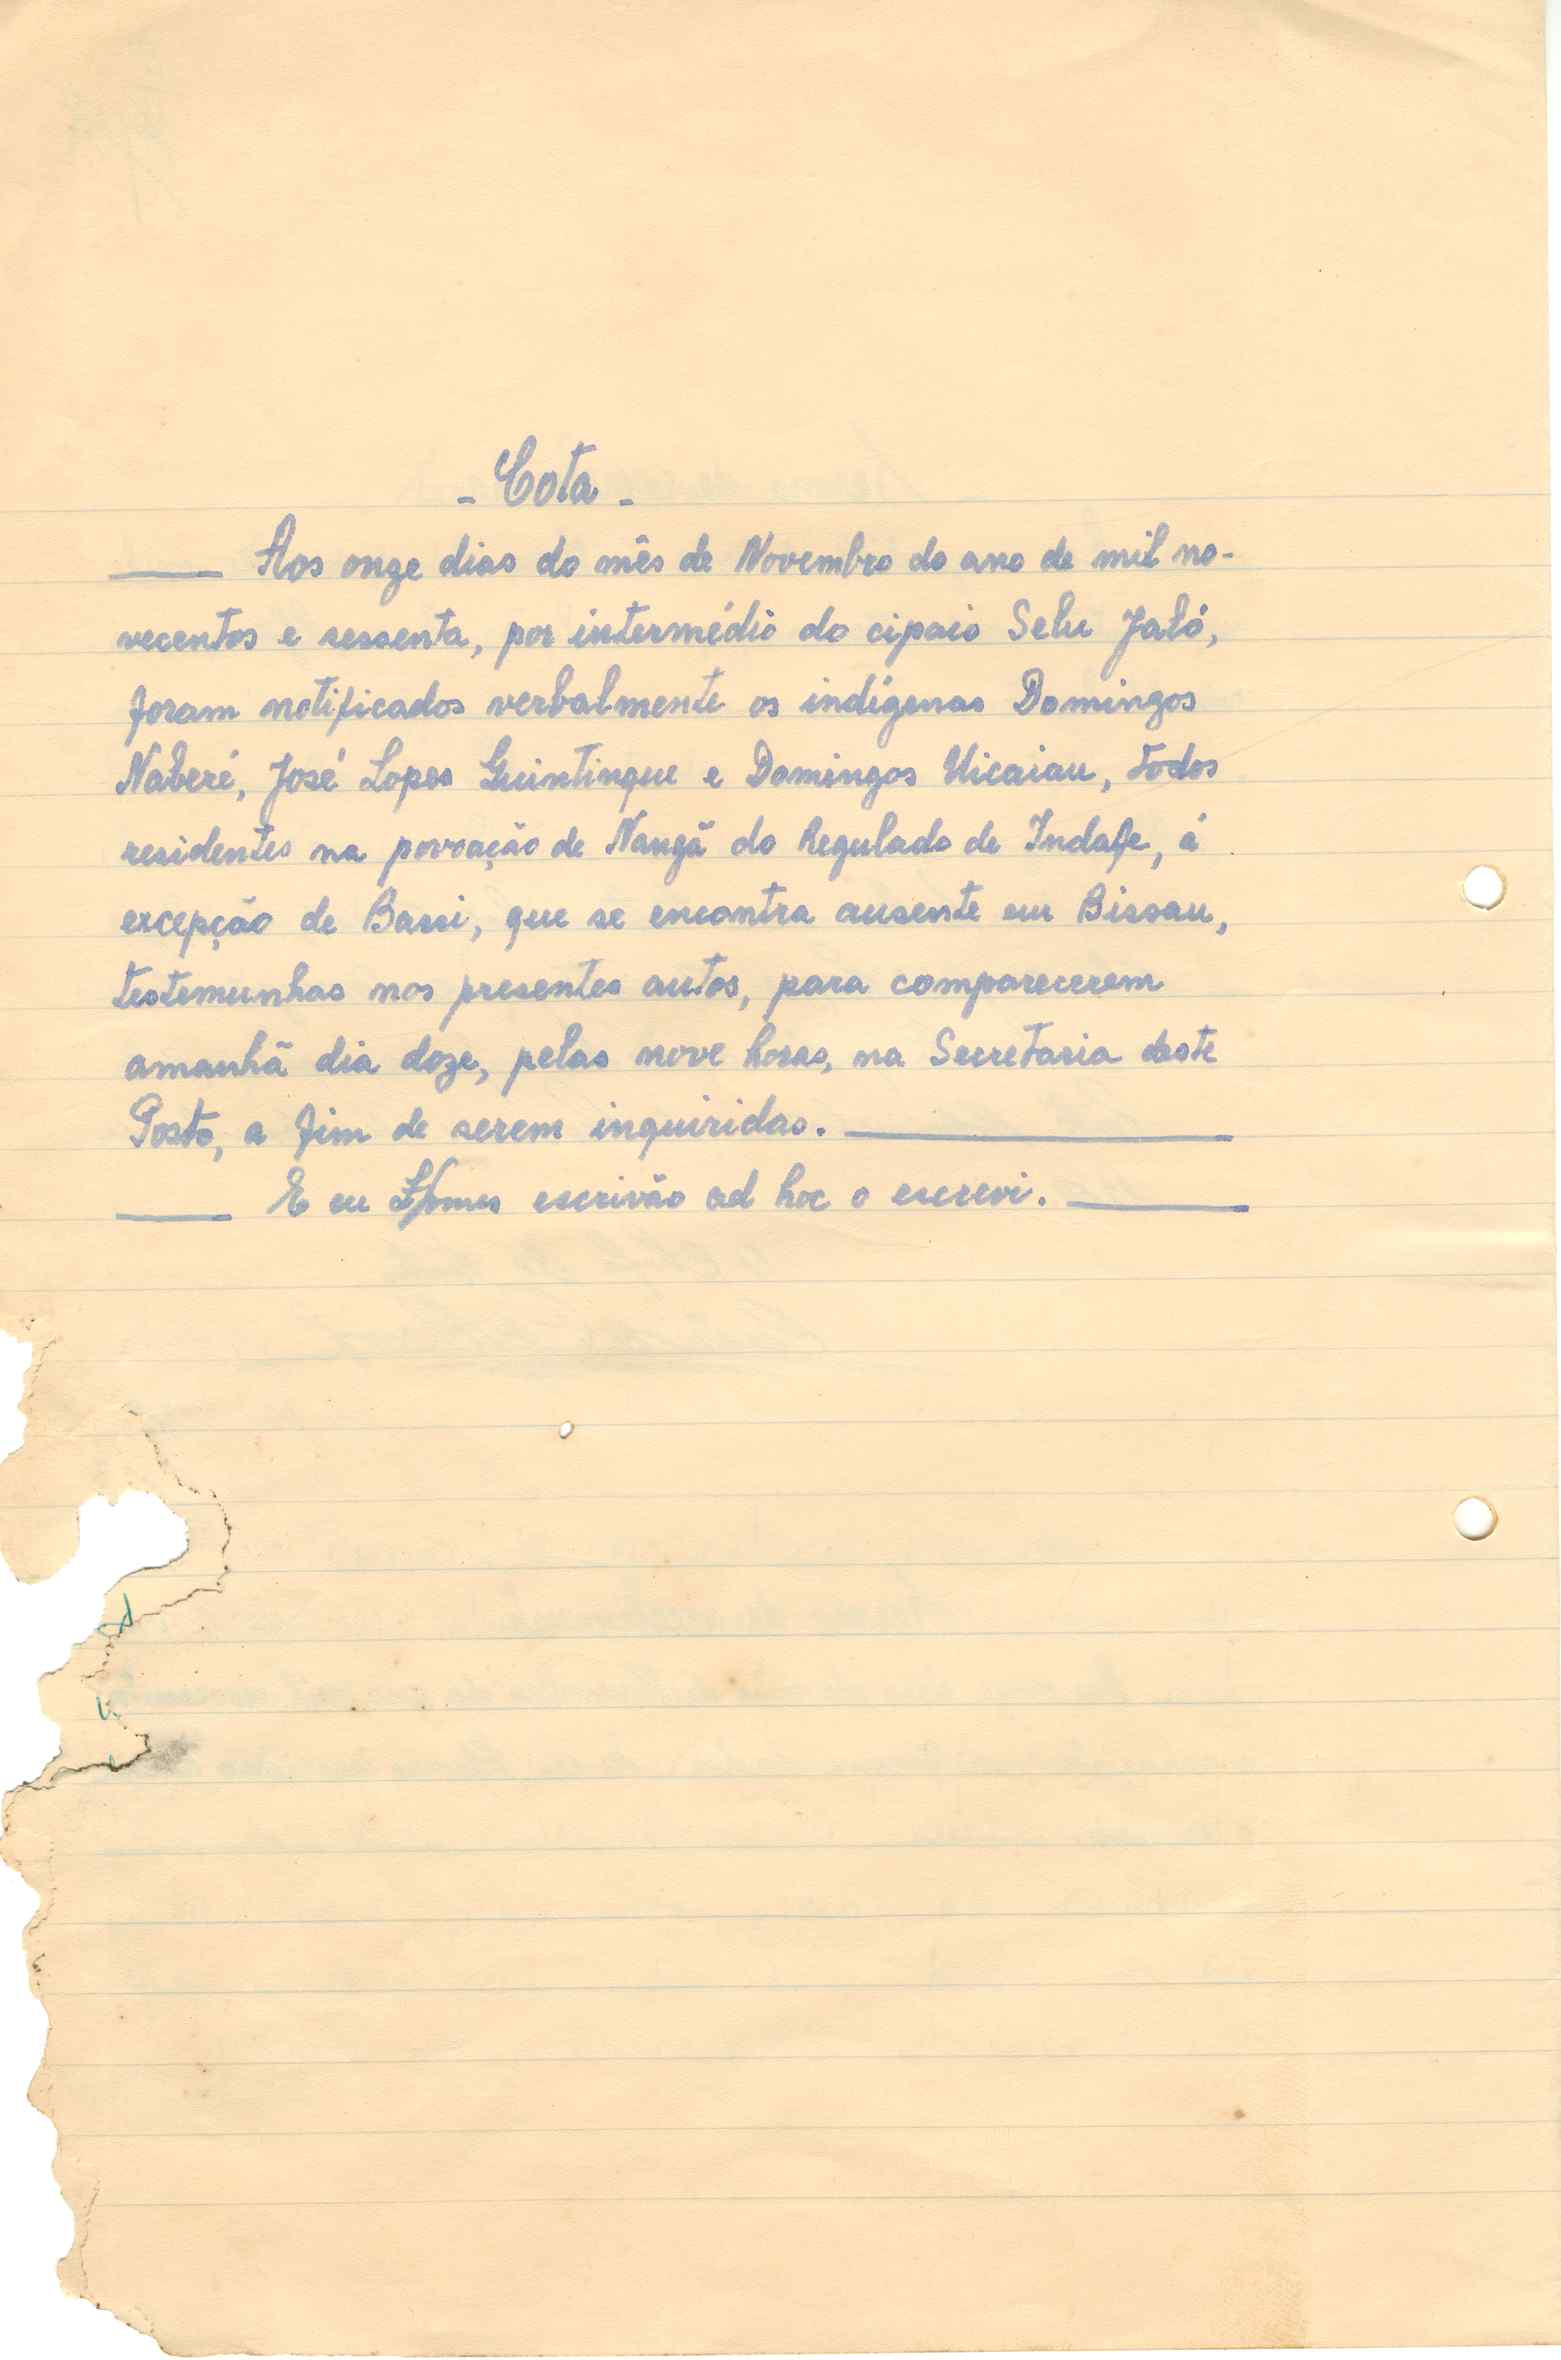 - Cota -
Aos onze dias do mês de Novembro do ano de mil no-
vecentos e sessenta, por intermédio do cipaio Selu Jaló,
foram notificados verbalmente os indígenas Domingos
Naberé, José Lopes Guintinque e Domingos Uicaiau, todos
residentes na povoação de Nangã do Regulado de Indafe, á
excepção de Bassi, que se encontra ausente em Bissau,
testemunhas nos presentes autos, para comparecerem
amanhã dia doze, pelas nove horas, na Secretaria deste
Posto, a fim de serem inquiridas.
E eu escrivão ad hoc o escrevi.